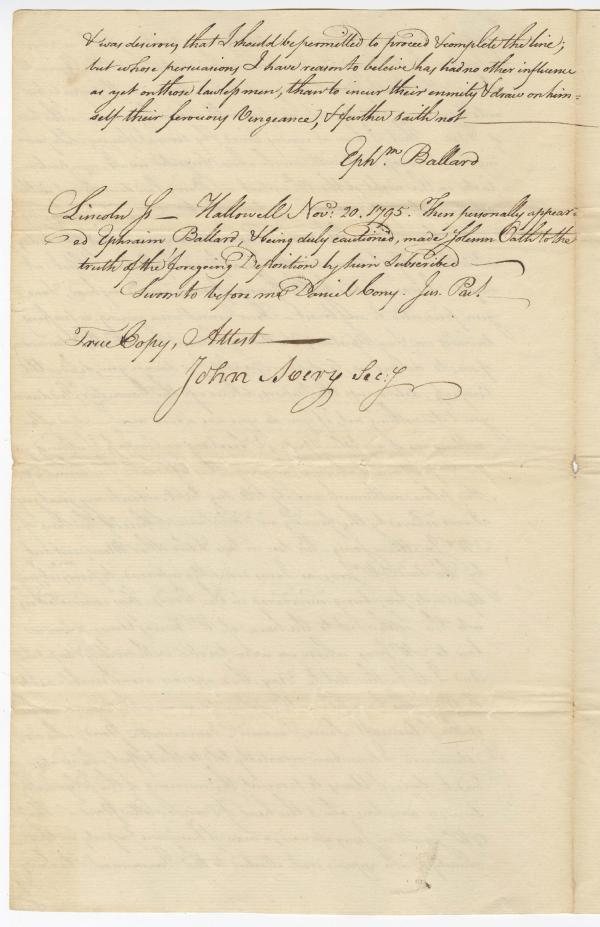 & was desirous that I should be permitted to proceed & complete the line;
but whose persuasions I have reason to beleive has had no other influence
as yet on those lawless men, than to incur their enmity & draw on him=
self their ferocious Vengeance, & further saith not
Ephm. Ballard
Lincoln Ss — Hallowell Novr. 20. 1795. Then personally appear=
ed Ephraim Ballard, & being duly cautioned, made Solemn Oath to the
truth of the foregoing Deposition by him Subscribed
Sworn to before me Daniel Cony. Jus. Pac.
True Copy, Attest
John Avery Secy